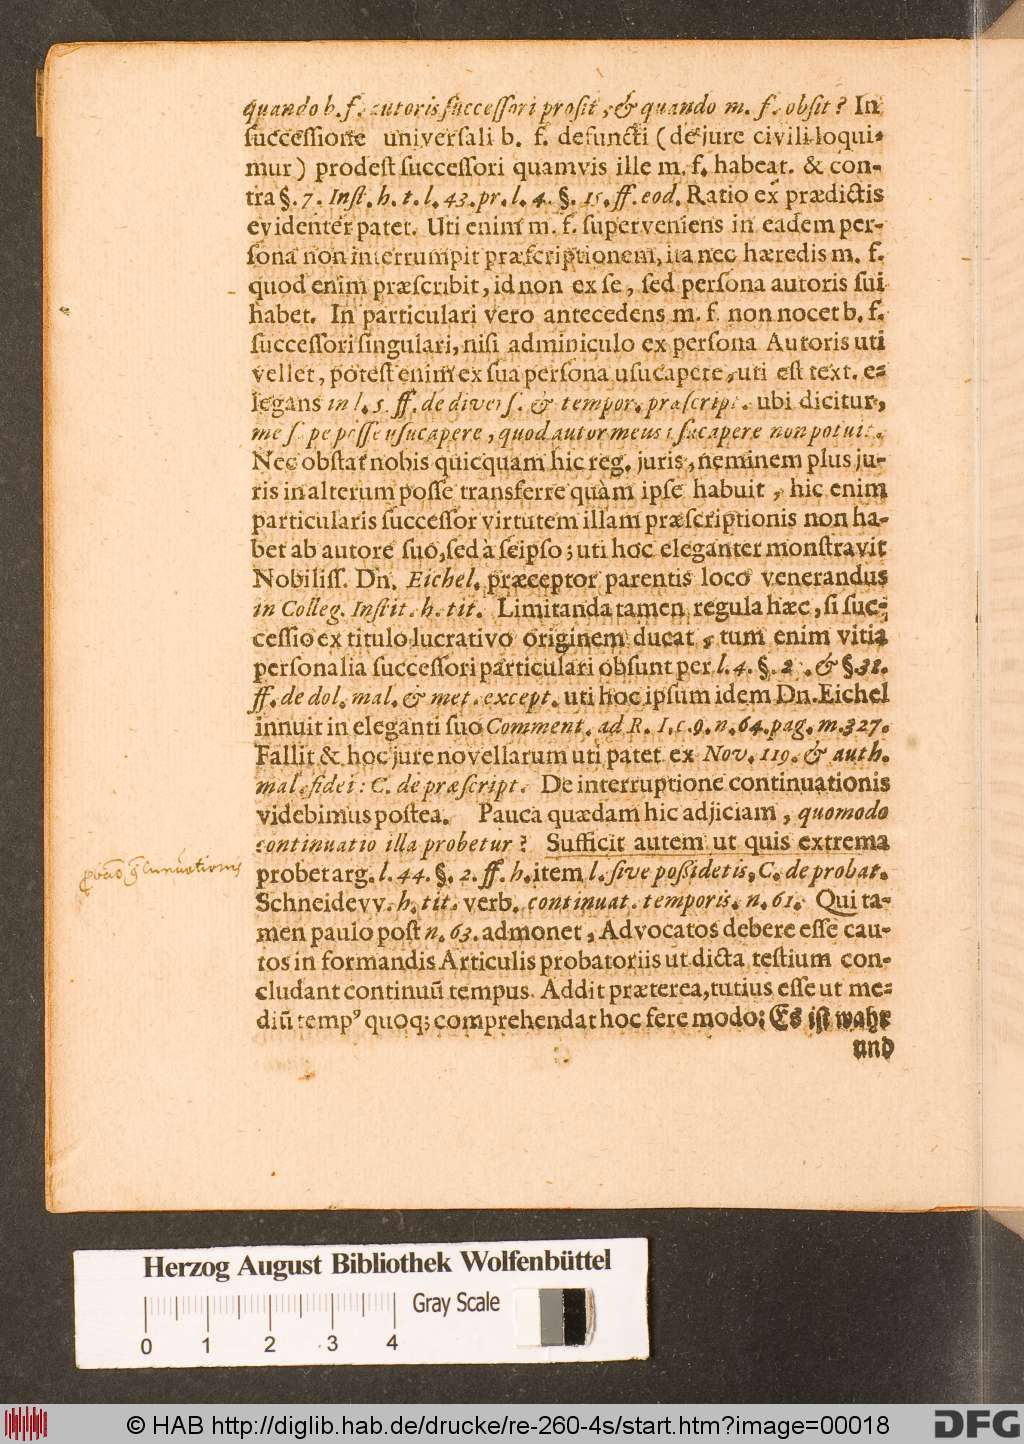 quando b. f. autoris successori prosit, & quando m. f. obsit? In
successione universali b. f. defuncti (de jure civili loqui-
mur) prodest successori quamvis ille m. f. habeat. & con-
tra §. 7. Inst. h. t. l. 43. pr. l. 4. §. 15. ff. eod. Ratio ex prædictis
evidenter patet. Uti enim m. f. superveniens in eadem per-
sona non interrumpit præscriptionem, ita nec hæredis m. f.
quod enim præscribit, id non ex se, sed persona autoris sui
habet. In particulari vero antecedens m. f. non nocet b. f.
successori singulari, nisi adminiculo ex persona Autoris uti
vellet, potest enim ex sua persona usucapere, uti est text. e-
legans in l. 5. ff. de divers. & tempor. præscript. ubi dicitur,
me sæpe posse usucapere, quod autor meus usucapere non potuit.
Nec obstat nobis quicquam hic reg. juris, neminem plus ju-
ris in alterum posse transferre quàm ipse habuit, hic enim
particularis successor virtutem illam præscriptionis non ha-
bet ab autore suo, sed à seipso; uti hoc eleganter monstravit
Nobiliss. Dn. Eichel. præceptor parentis loco venerandus
in Colleg. Instit. h. tit. Limitanda tamen regula hæc, si suc-
cessio ex titulo lucrativo originem ducat, tum enim vitia
personalia successori particulari obsunt per l. 4. §. 2. & §. 31.
ff. de dol. mal. & met. except. uti hoc ipsum idem Dn. Eichel
innuit in eleganti suo Comment. ad R. I. c. 9. n. 64. pag. m. 327.
Fallit & hoc jure novellarum uti patet ex Nov. 119. & auth.
mal. fidei: C. de præscript. De interruptione continuationis
videbimus postea. Pauca quædam hic adjiciam, quomodo
continuatio illa probetur? Sufficit autem ut quis extrema
probet arg. l. 44. §. 2. ff. h. item l. sive possidetis, C. de probat.
Schneidevv. h. tit. verb. continuat. temporis. n. 61. Qui ta-
men paulo post n. 63. admonet, Advocatos debere esse cau-
tos in formandis Articulis probatoriis ut dicta testium con-
cludant continuū tempus. Addit præterea, tutius esse ut me-
diū tempꝰ quoq; comprehendat hoc fere modo: Es ist wahr
und
Herzog August Bibliothek Wolfenbüttel
Gray Scale
0 1 2 3 4
© HAB http://diglib.hab.de/drucke/re-260-4s/start.htm?image=00018
DFG